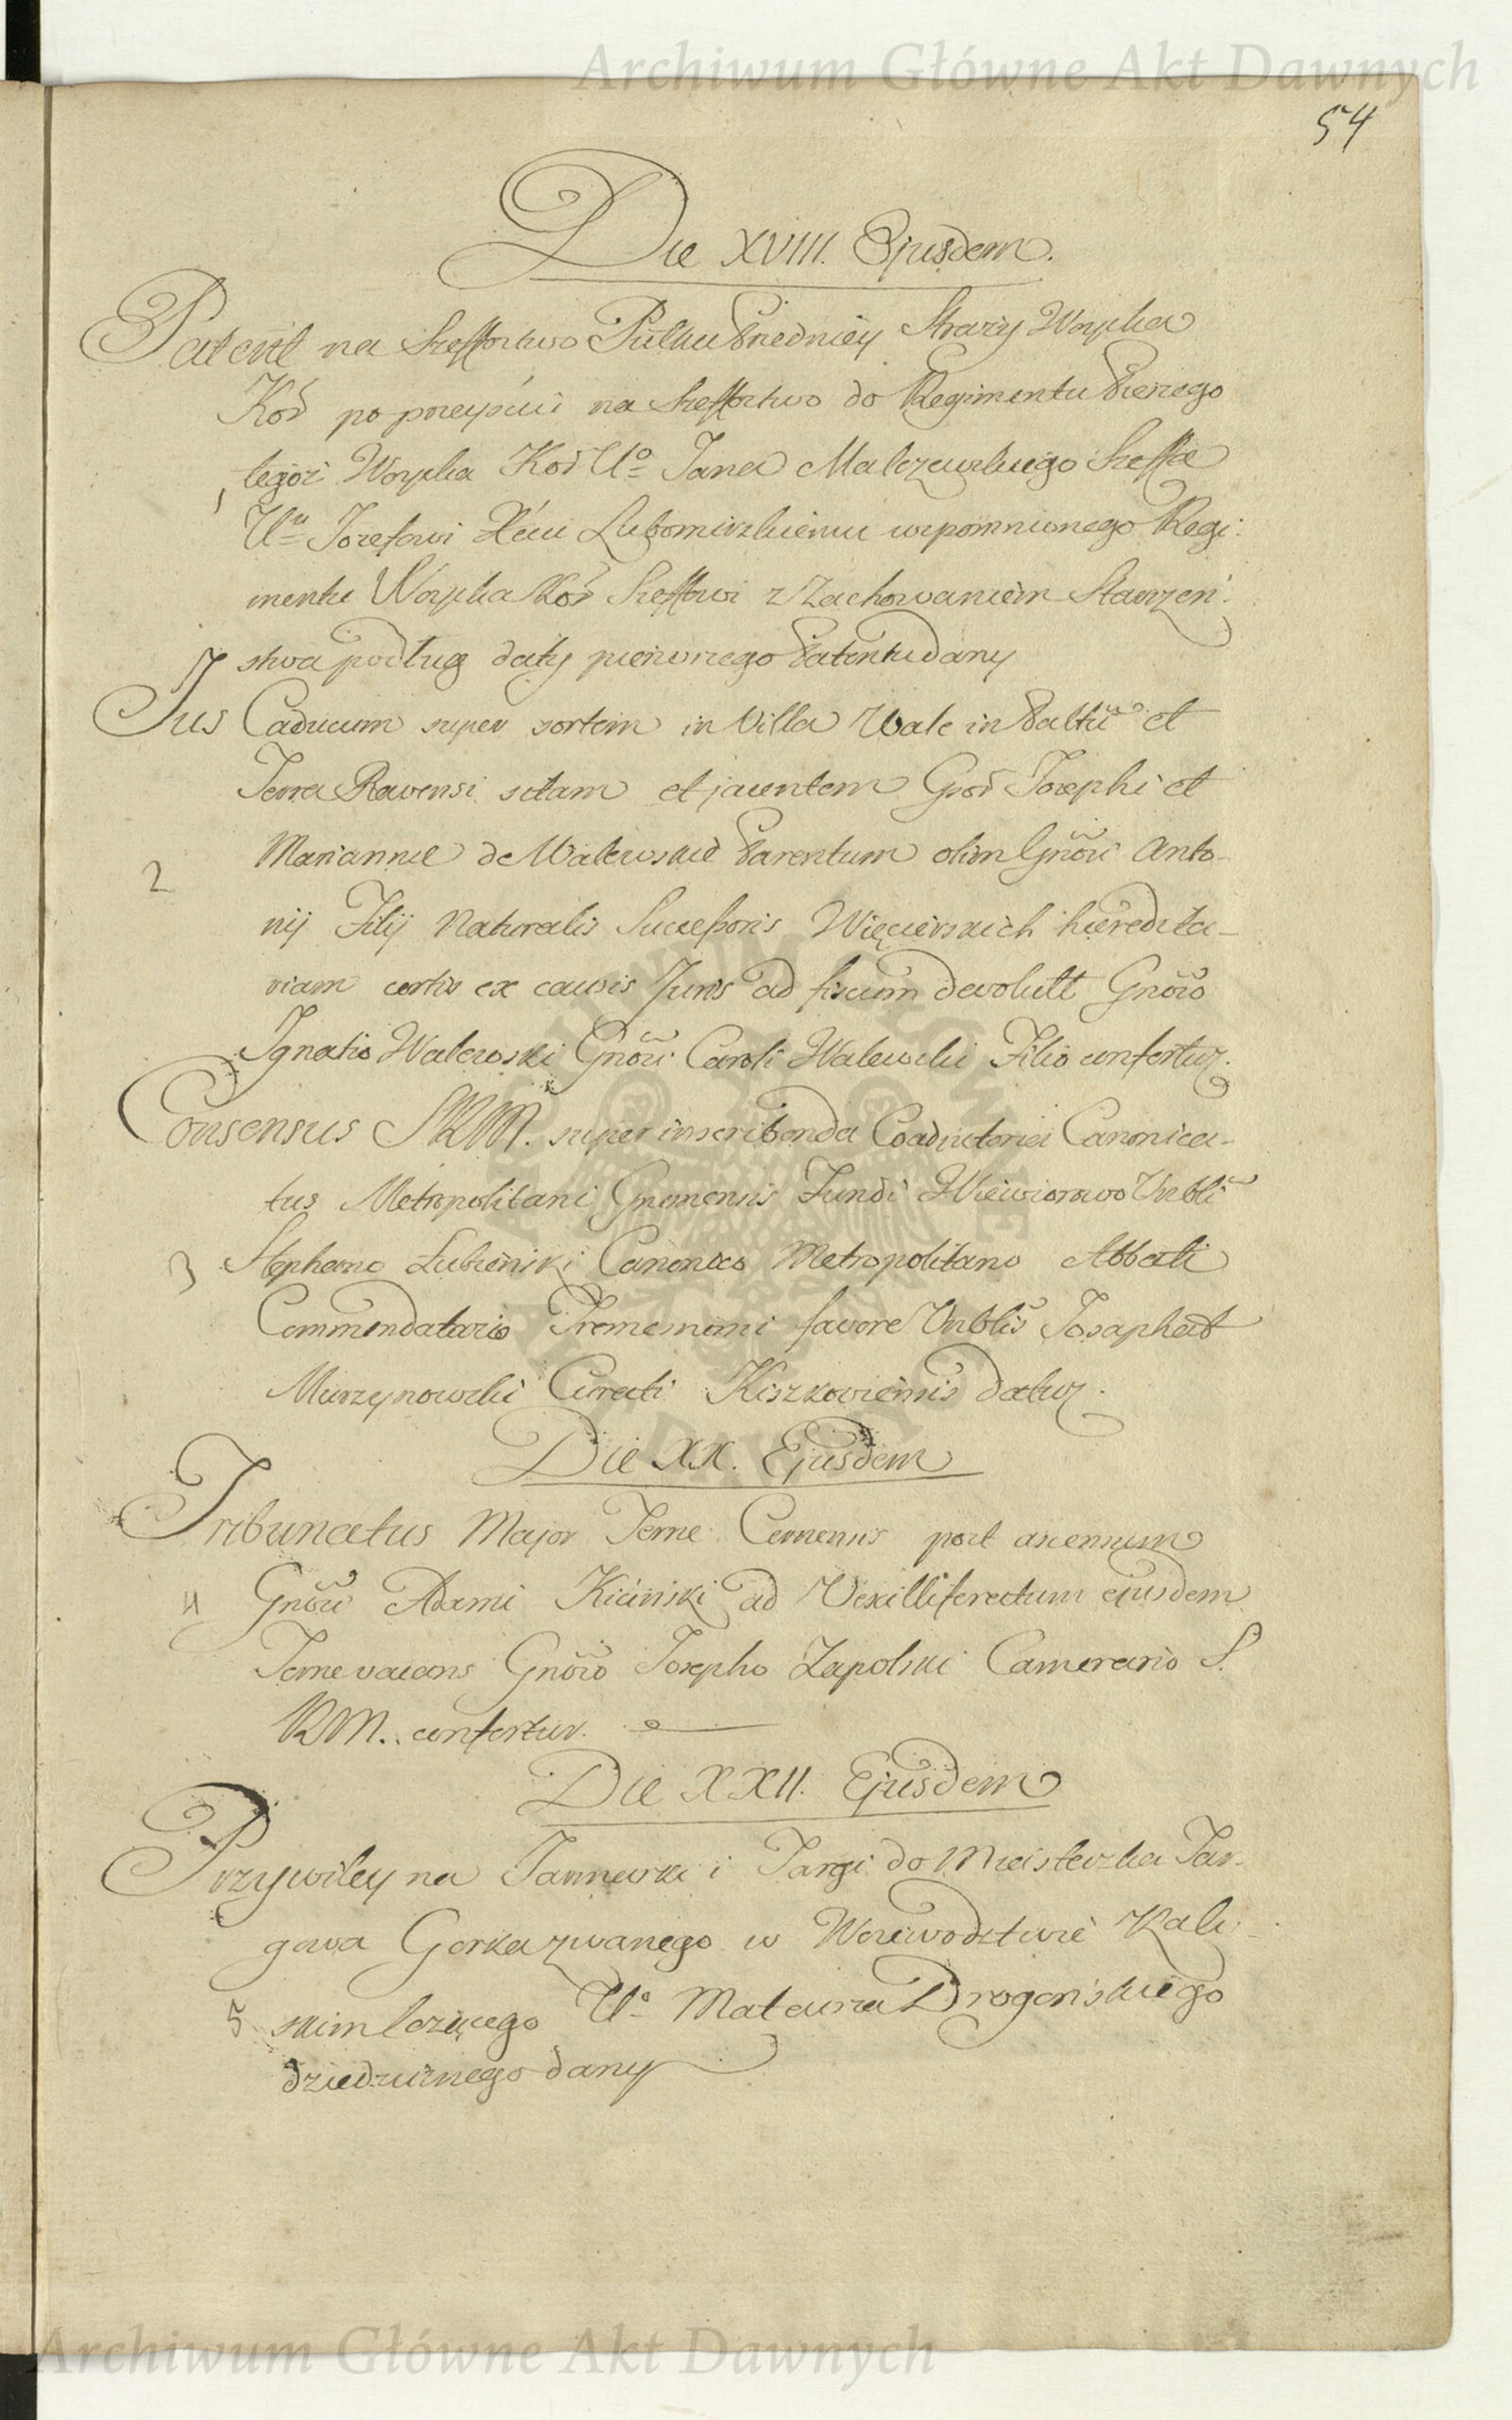 Archiwum Główne Akt Dawnych
54
Die XVIII. Ejusdem.
Patent na Szeffostwo Pułku Przedniéy Straży Woyska
Kor̃ po przeyściu na Szeffostwo do Regimentu Pieszego
tegoż Woyska Kor̃ Uo Jana Malczewskiego Szeffa
1
Umu Jozefowi Xciu Lubomirskiemu wspomnionego Regi:
mentu Woyska Kor̃ Szeffowi z Zachowaniem Starszeń:
stwa podług daty pierwszego Patentu dany
Jus Caducum super sortem in Villa Wale in Palttũ et
Terra Ravensi sitam et jacentem Gror̃ Josephi et
Mariannæ de Walewskie Parentum olim Gñõri Anto-
2
nij Filij Naturalis Successoris Więcierskich hæredita-
riam certis ex causis Juris ad fiscum devolutt Gnõro
Ignatio Walewski Gnõri Caroli Walewski Filio confertur.
Consensus SRM. super inscribenda Coadjutoria Canonica-
tus Metropolitani Gnesnensis Fundi Wiewiorowo Vrbli
3 Stephano Łubieński Canonico Metropolitano Abbati
Commendatario Tremesnensi favore Vrblis Josaphat
Murzynowski Curati Kiszkoviensis datur.
Die XX. Ejusdem
Tribunatus Major Terræ Cernensis post ascensum
4 Gnõri Adami Kiciński ad Vexilliferatum ejusdem
Terræ vacans Gnõro Josepho Zapolski Camerario S.
RM. confertur.
Die XXII. Ejusdem
Przywiley na Jarmarki i Targi do Miasteczka Tar-
gowa Gorka zwanego w Woiewodztwie Kali-
5 skim leżącego Uo Mateusza Drogońskiego
dziedzicznego dany
Archiwum Główne Akt Dawnych